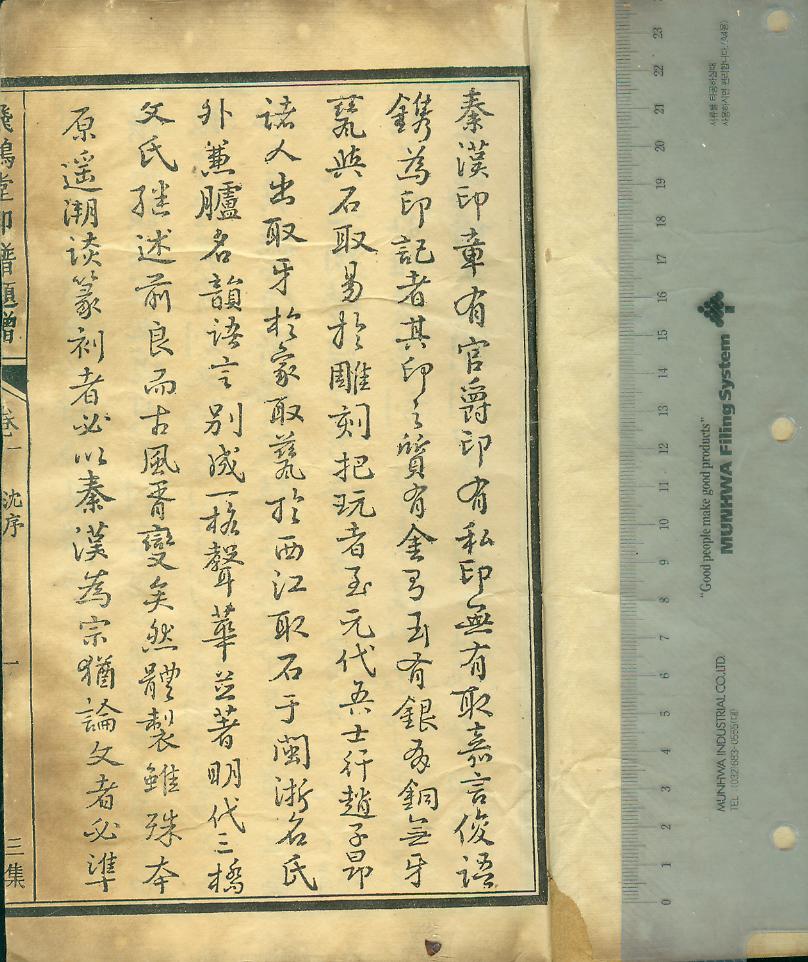 秦漢印章有官爵印有私印無有取嘉言俊語
鐫為印記者其印之質有金有玉有銀有銅無牙
甆與石取易於雕刻把玩者至元代吾士衍趙子昂
諸人出取牙於家取甆於西江取石于閩浙名氏
外兼臚名韻語言別成一格聲華並著明代三橋
文氏継述前良而古風胥變矣然體製雖殊本
原遥溯談篆刻者必以秦漢為宗猶論文者必準
飛鴻堂印譜題贈
卷一
沈序
一
三集
서류를 타공하실때
사용하시면 편리합니다. (A4용)
"Good people make good products"
MUNHWA Filing System
MUNHWA INDUSTRIAL CO.,LTD.
TEL : (032)683-0555(대)
23
22
21
20
19
18
17
16
15
14
13
12
11
10
9
8
7
6
5
4
3
2
1
0